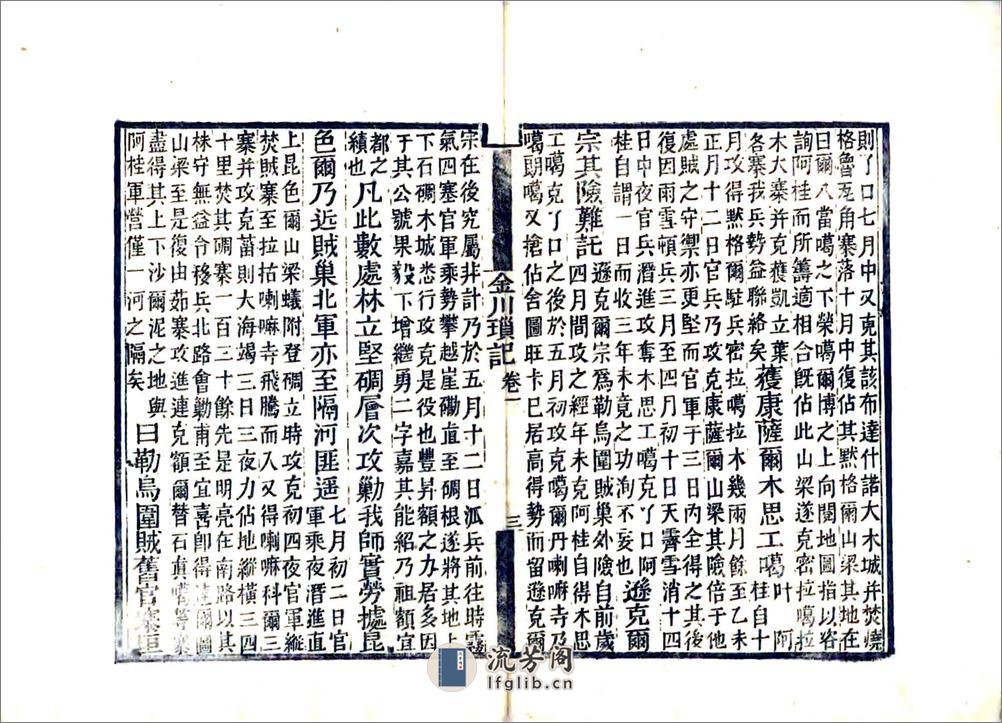 則了口七月中又克其該布達什諾大木城并焚燒
格魯瓦角寨落十月中復佔其默格爾山梁其地在
曰爾八當噶之下榮噶爾博之上向閱地圖指以咨
詢阿桂而所籌適相合旣佔此山梁遂克密拉噶拉
木大寨并克穫凱立葉
各寨我兵勢益聯絡矣
穫康薩爾木思工噶
叶 阿
桂自十
月攻得默格爾駐兵密拉噶拉木幾兩月餘至乙未
正月十二日官兵乃攻克康薩爾山梁其險倍于他
處賊之守禦亦更堅而官軍于三日內全得之其後
復因雨雪頓兵三月至四月初十日天霽雪消十四
日中夜官兵潛進攻奪木思工噶克丫口阿
桂自謂一日而收三年未竟之功洵不妄也
遜克爾
宗其險難託
遜克爾宗爲勒烏圍賊巢外險自前歲
四月間攻之經年未克阿桂自得木思
工噶克丫口之後於五月朔攻克噶爾丹喇嘛寺乃
噶朗噶又搶佔舍圖旺卡已居高得勢而留遜克爾
金川瑣記 卷一 三
宗在後究屬非計乃於五月十二日派兵前往時雲
氣四塞官軍乘勢攀越崖磡直至碉根遂將其地上
下石碉木城悉行攻克是役也豐昇額之力居多因
于其公號果毅下增繼勇二字嘉其能紹乃祖額宜
都之
績也
凡此數處林立堅碉層次攻勦我師實勞據昆
色爾乃近賊巢北軍亦至隔河匪遥
七月初二日官
軍乘夜潛進直
上昆色爾山梁蟻附登碉立時攻克初四夜官軍縱
焚賊寨至拉枯喇嘛寺飛騰而入又得喇嘛科爾三
寨并攻克菑則大海竭三日三夜力佔地縱橫三四
十里焚其碉寨一百三十餘先是明亮在南路以其
株守無益令移兵北路會勦甫至宜喜卽得達爾圖
山梁至是復由茹寨攻進連克額爾替石真噶等寨
盡得其上下沙爾泥之地與
阿桂軍營僅一河之隔矣
曰勒烏圍賊舊官寨